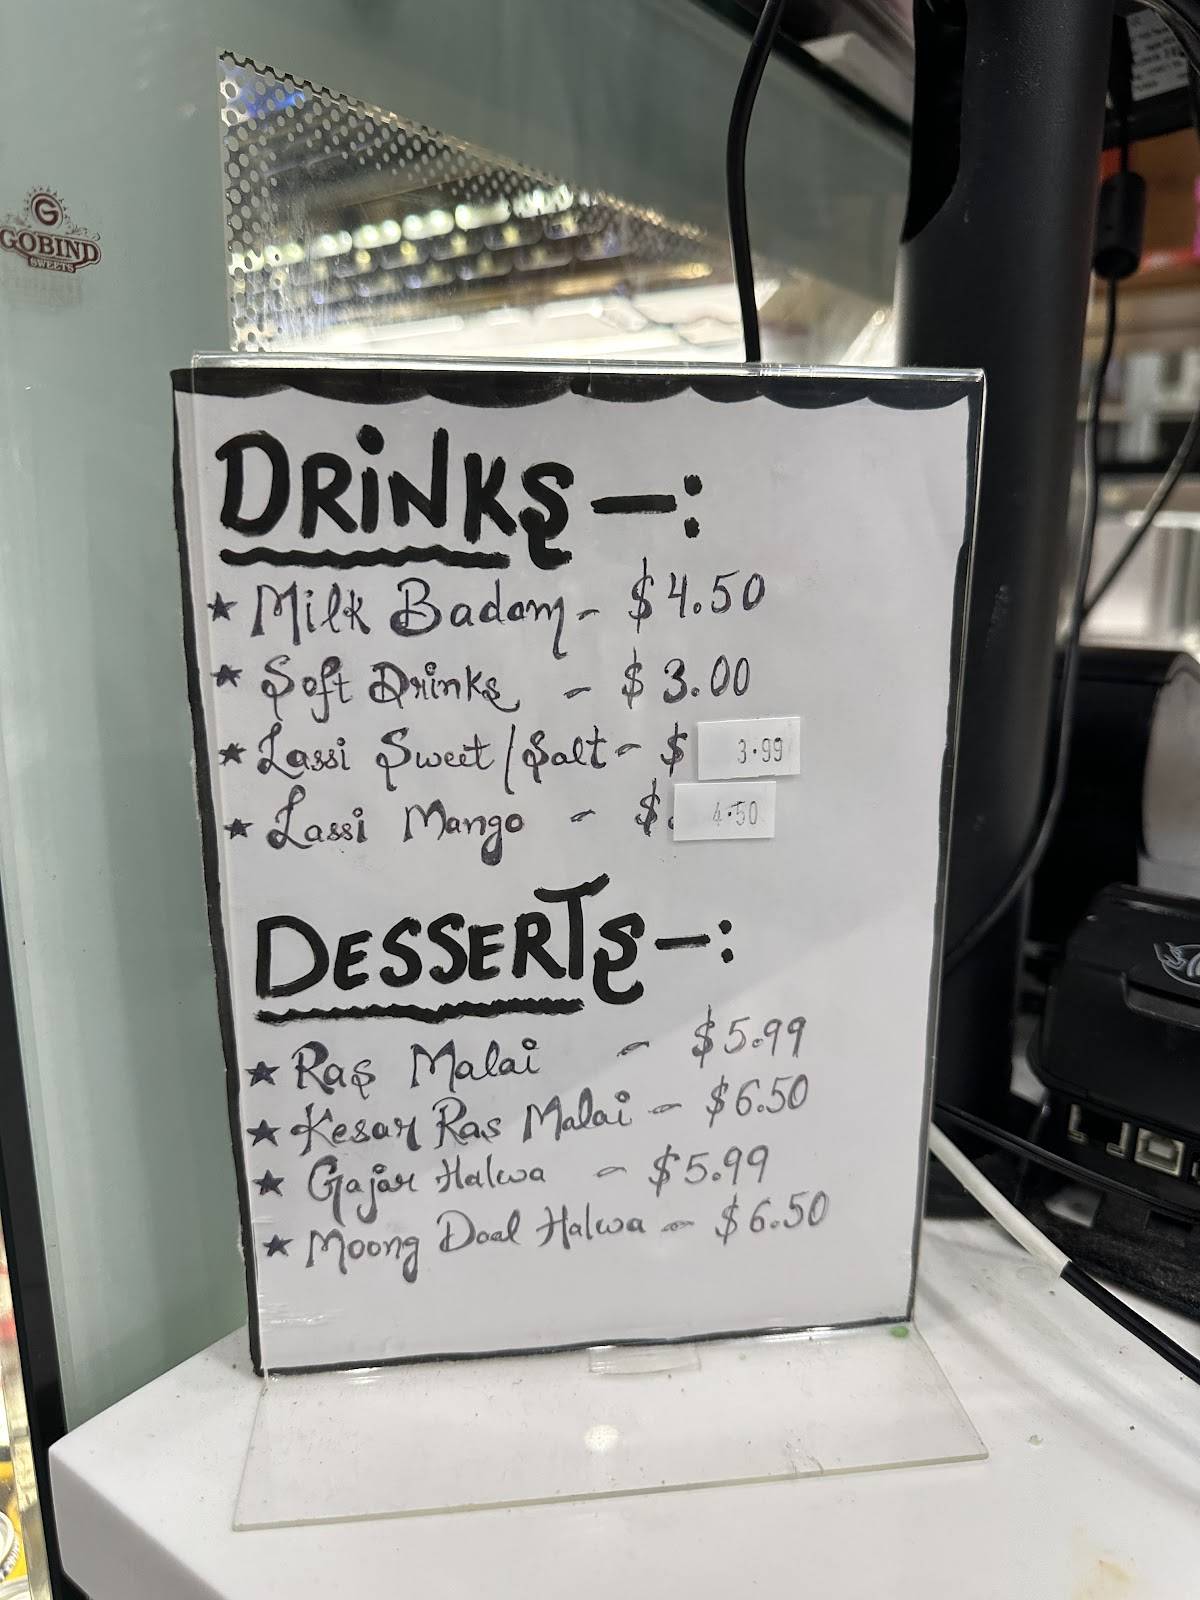 G
GOBIND
SWEETS
DRiNKS -:
★ Milk Badam - $4.50
★ Soft Drinks - $3.00
★ Lassi Sweet/Salt - $ 3.99
★ Lassi Mango - $. 4.50
DESSERTS -:
★ Ras Malai - $5.99
★ Kesar Ras Malai - $6.50
★ Gajar Halwa - $5.99
★ Moong Daal Halwa - $6.50